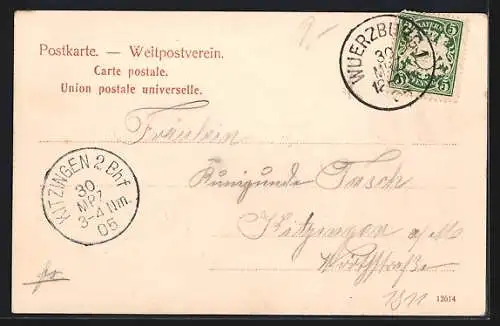 9.-
Postkarte. — Weltpostverein.
Carte postale.
Union postale universelle.
WUERZBURG 1
30
BAYERN
5
Fräulein
Kunigunde Tasch
Kitzingen a/M
Wörthstraße
KITZINGEN 2 Bhf
30
MRZ
3-4 Nm.
05
12014